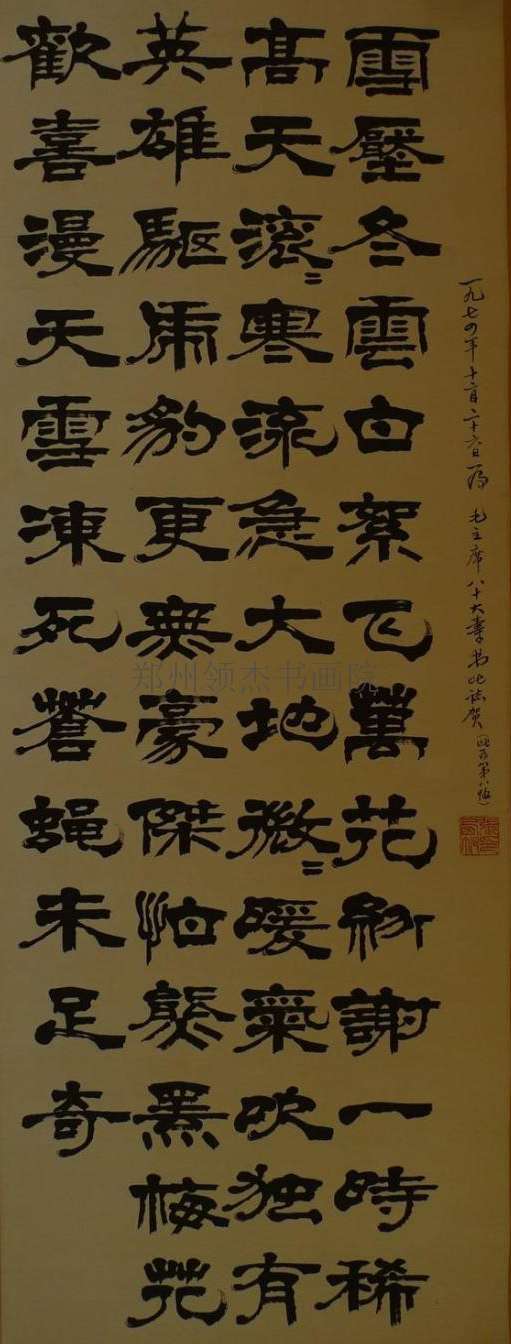 一九七四年十二月二十六日 为 毛主席八十大寿书此誌贺
雪壓冬雲白絮飞萬花紛謝一時稀
高天滚〻寒流急大地微〻暖氣吹独有
英雄駆虎豹更無豪傑怕熊罴梅花
歡喜漫天雪凍死蒼蝇未足奇
郑州领杰书画院